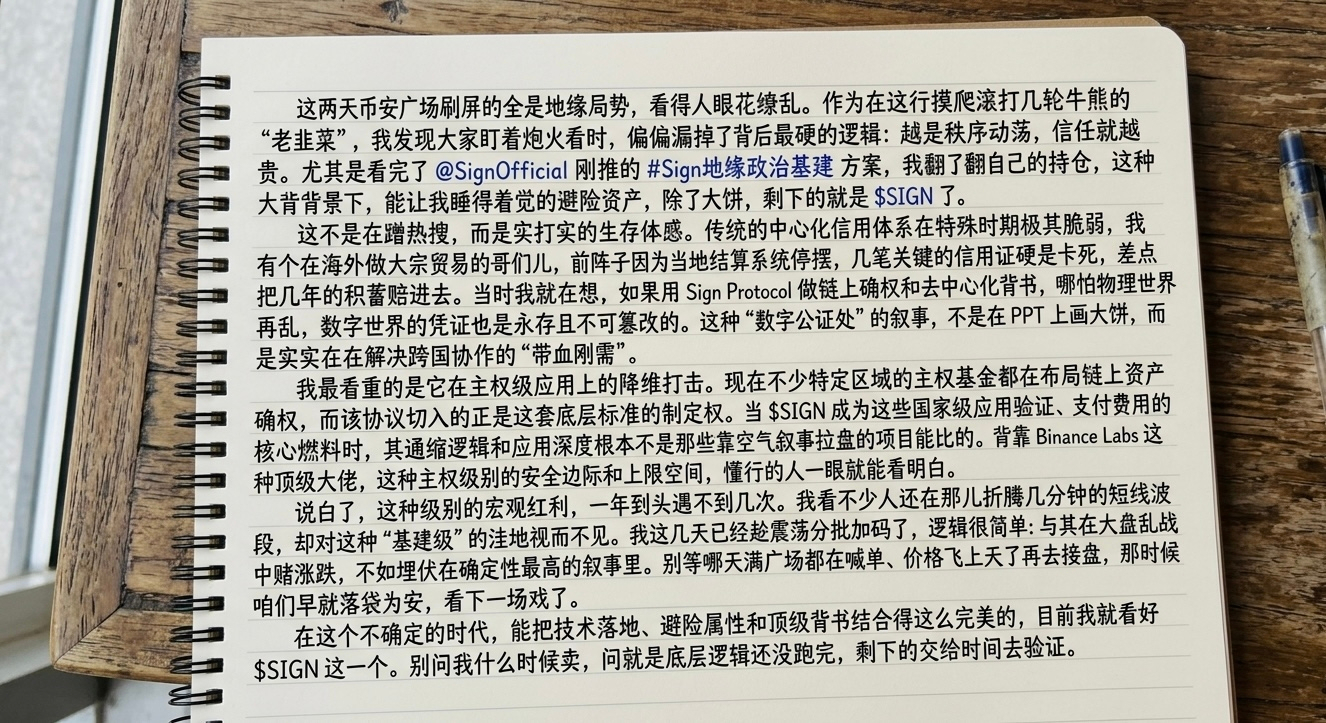 这两天币安广场刷屏的全是地缘局势，看得人眼花缭乱。作为在这行摸爬滚打几轮牛熊的
“老韭菜”，我发现大家盯着炮火看时，偏偏漏掉了背后最硬的逻辑：越是秩序动荡，信任就越
贵。尤其是看完了 @SignOfficial 刚推的 #Sign地缘政治基建 方案，我翻了翻自己的持仓，这种
大背背景下，能让我睡得着觉的避险资产，除了大饼，剩下的就是 $SIGN 了。
这不是在蹭热搜，而是实打实的生存体感。传统的中心化信用体系在特殊时期极其脆弱，我
有个在海外做大宗贸易的哥们儿，前阵子因为当地结算系统停摆，几笔关键的信用证硬是卡死，差点
把几年的积蓄赔进去。当时我就在想，如果用 Sign Protocol 做链上确权和去中心化背书，哪怕物理世界
再乱，数字世界的凭证也是永存且不可篡改的。这种“数字公证处”的叙事，不是在 PPT 上画大饼，而
是实实在在解决跨国协作的“带血刚需”。
我最看重的是它在主权级应用上的降维打击。现在不少特定区域的主权基金都在布局链上资产
确权，而该协议切入的正是这套底层标准的制定权。当 $SIGN 成为这些国家级应用验证、支付费用的
核心燃料时，其通缩逻辑和应用深度根本不是那些靠空气叙事拉盘的项目能比的。背靠 Binance Labs 这
种顶级大佬，这种主权级别的安全边际和上限空间，懂行的人一眼就能看明白。
说白了，这种级别的宏观红利，一年到头遇不到几次。我看不少人还在那儿折腾几分钟的短线波
段，却对这种“基建级”的洼地视而不见。我这几天已经趁震荡分批加码了，逻辑很简单：与其在大盘乱战
中赌涨跌，不如埋伏在确定性最高的叙事里。别等哪天满广场都在喊单、价格飞上天了再去接盘，那时候
咱们早就落袋为安，看下一场戏了。
在这个不确定的时代，能把技术落地、避险属性和顶级背书结合得这么完美的，目前我就看好
$SIGN 这一个。别问我什么时候卖，问就是底层逻辑还没跑完，剩下的交给时间去验证。